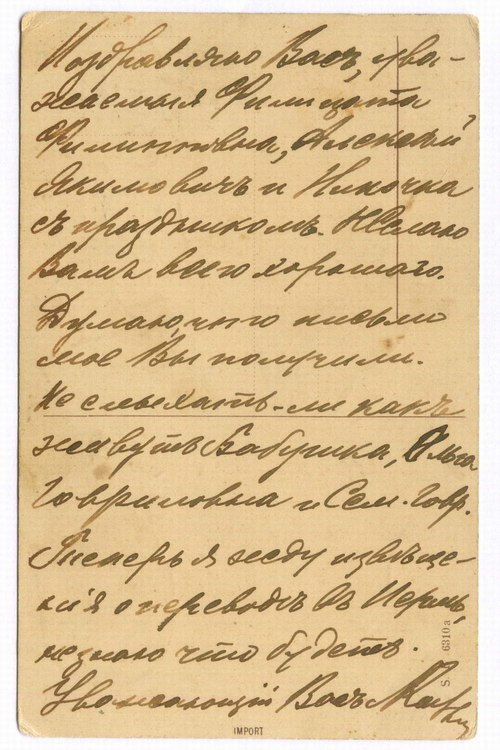 Поздравляю Васъ, ува-
жаемыя Фелицата
Филипповна, Алексѣй
Якимовичъ и Ниночка
съ праздникомъ. Желаю
Вамъ всего хорошаго.
Думаю, что письмо
мое Вы получили.
Не слыхать-ли какъ
живутъ Бабушка, Ольга
Гавриловна и Сем. Гавр.
Теперь я жду извѣще-
нія о переводѣ въ Пермь,
незнаю что будетъ.
Уважающій Васъ
S. 6810a
IMPORT